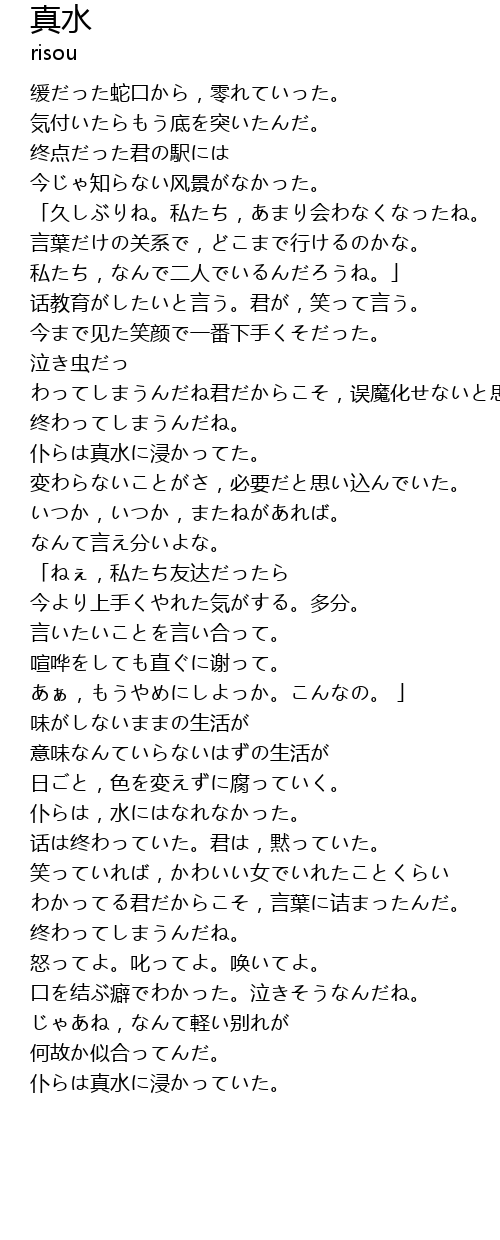 真水
risou
缓だった蛇口から，零れていった。
気付いたらもう底を突いたんだ。
终点だった君の駅には
今じゃ知らない风景がなかった。
「久しぶりね。私たち，あまり会わなくなったね。
言葉だけの关系で，どこまで行けるのかな。
私たち，なんで二人でいるんだろうね。」
话教育がしたいと言う。君が，笑って言う。
今まで见た笑颜で一番下手くそだった。
泣き虫だっ
わってしまうんだね君だからこそ，误魔化せないと思
终わってしまうんだね。
仆らは真水に浸かってた。
変わらないことがさ，必要だと思い込んでいた。
いつか，いつか，またねがあれば。
なんて言え分いよな。
「ねぇ，私たち友达だったら
今より上手くやれた気がする。多分。
言いたいことを言い合って。
喧哗をしても直ぐに谢って。
あぁ，もうやめにしよっか。こんなの。 」
味がしないままの生活が
意味なんていらないはずの生活が
日ごと，色を変えずに腐っていく。
仆らは，水にはなれなかった。
话は终わっていた。君は，黙っていた。
笑っていれば，かわいい女でいれたことくらい
わかってる君だからこそ，言葉に诘まったんだ。
终わってしまうんだね。
怒ってよ。叱ってよ。唤いてよ。
口を结ぶ癖でわかった。泣きそうなんだね。
じゃあね，なんて軽い别れが
何故か似合ってんだ。
仆らは真水に浸かっていた。